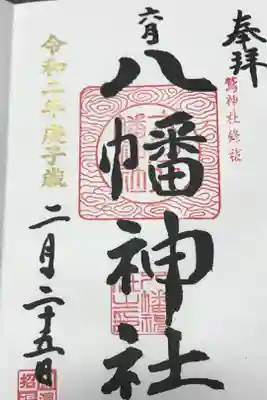 奉拝
鷲神社総祓
六月
八幡神社
令和二年庚子歳
二月二十五日